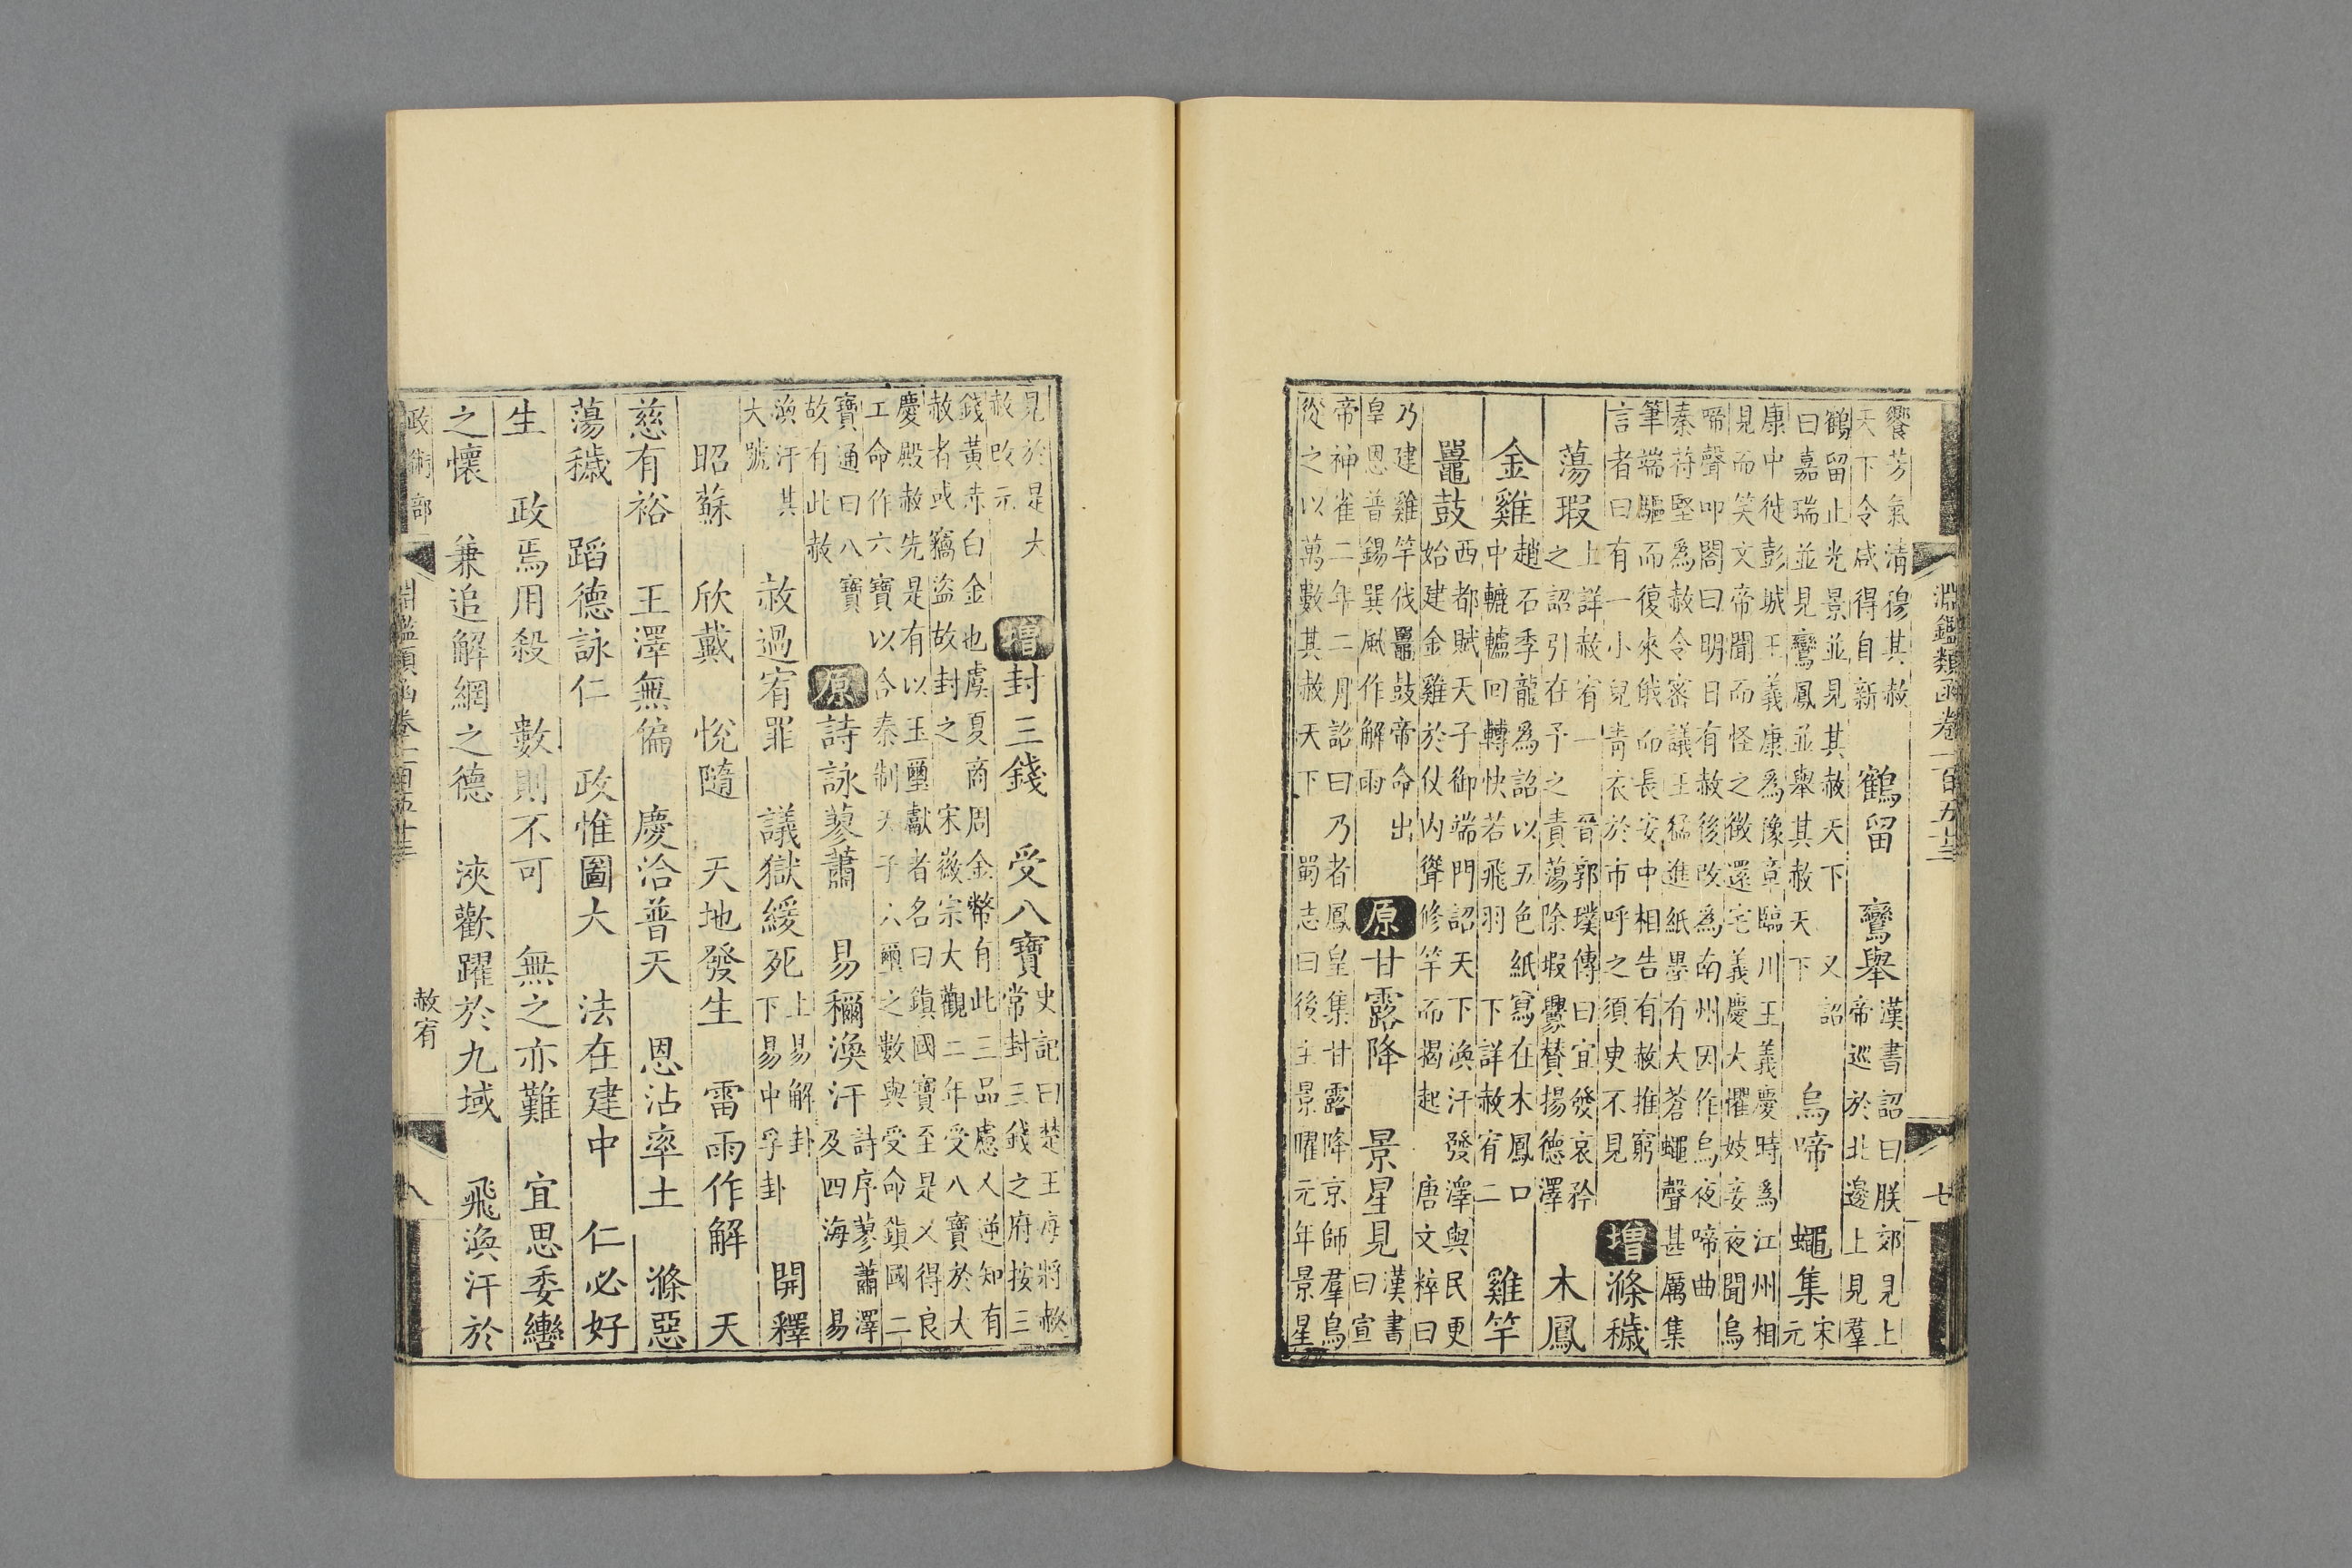 淵鑑類函卷一百五十三
七
饗芳氣清穆其赦
天下令咸得自新
鶴留　鸞舉
漢書詔曰朕郊見上
帝巡於北邊上見羣
鶴留止光景並見其赦天下　又詔
曰嘉瑞並見鸞鳳並舉其赦天下
烏啼　蠅集
宋
元
康中徙彭城王義康為豫章臨川王義慶時為江州相
見而笑文帝聞而怪之徵還宅義慶大懼妓妾夜聞烏
啼聲叩閤曰明日有赦後改為南州因作烏夜啼曲
秦苻堅為赦令密議王猛進紙墨有大蒼蠅聲甚厲集
筆端驅而復來俄而長安中相告有赦推窮
言者曰有一小兒青衣於市呼之須臾不見
增　滌穢
蕩瑕
上詳赦宥一　晉郭璞傳曰宜發哀矜
之詔引在予之責蕩除瑕釁贊揚德澤
木鳳
金雞
趙石季龍為詔以五色紙寫在木鳳口
中轆轤回轉快若飛羽　下詳赦宥二
雞竿
鼉鼓
西都賦天子御端門詔天下渙汗發澤與民更
始建金雞於仗內聳修竿而揭起　唐文粹曰
乃建雞竿伐鼉鼓帝命出
皇恩普錫巽風作解雨
原　甘露降　景星見
漢書
曰宣
帝神雀二年二月詔曰乃者鳳皇集甘露降京師羣鳥
從之以萬數其赦天下　蜀志曰後主景曜元年景星
見於是大
赦改元
增　封三錢　受八寶
史記曰楚王每將赦
常封三錢之府按三
錢黃赤白金也虞夏商周金幣有此三品慮人逆知有
赦者或竊盜故封之　宋徽宗大觀二年受八寶於大
慶殿赦先是有以玉璽獻者名曰鎮國寶至是又得良
工命作六寶以合秦制天子六璽之數與受命鎮國二
寶通曰八寶
故有此赦
原　詩詠蓼蕭　易稱渙汗
詩序蓼蕭澤
及四海　易
渙汗其
大號
赦過宥罪　議獄緩死
上易解卦
下易中孚卦
開釋
昭蘇　欣戴　悅隨　天地發生　雷雨作解　天
慈有裕　王澤無偏　慶洽普天　恩沾率土　滌惡
蕩穢　蹈德詠仁　政惟圖大　法在建中　仁必好
生　政焉用殺　數則不可　無之亦難　宜思委轡
之懷　兼追解網之德　浹歡躍於九域　飛渙汗於
政術部　淵鑑類函卷一百五十三　赦宥　八